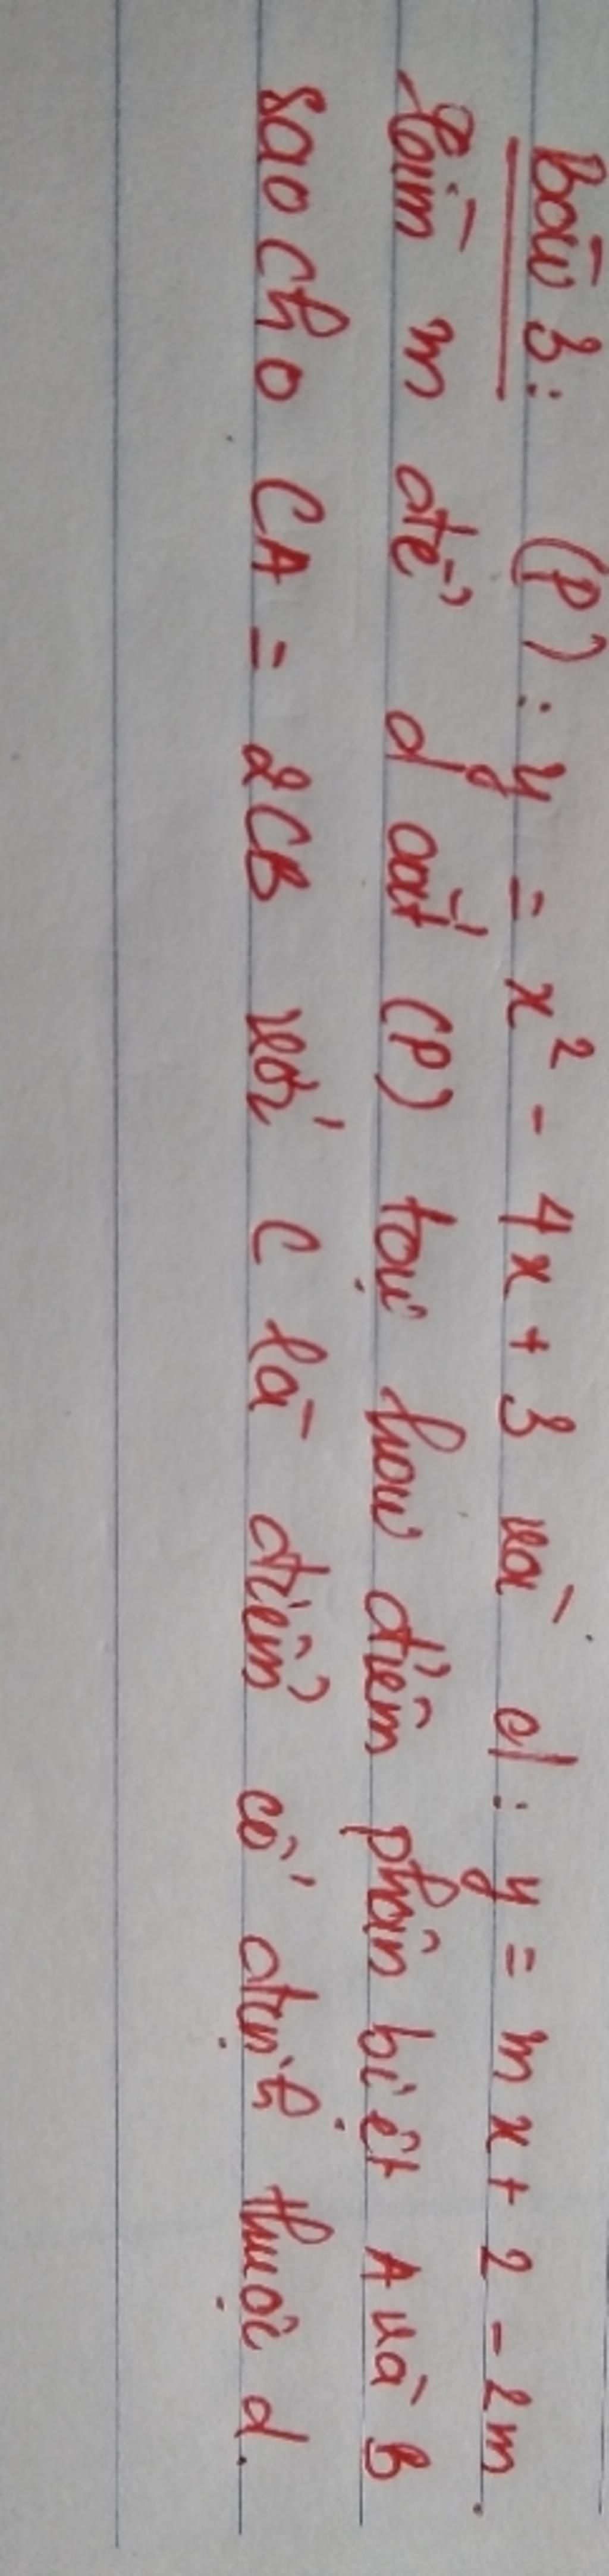 Bài 3: (P): y = x² - 4x + 3 và d: y = mx + 2 - 2m.
Tìm m để d cắt (P) tại hai điểm phân biệt A và B
sao cho CA = 2CB với C là điểm cố định thuộc d.